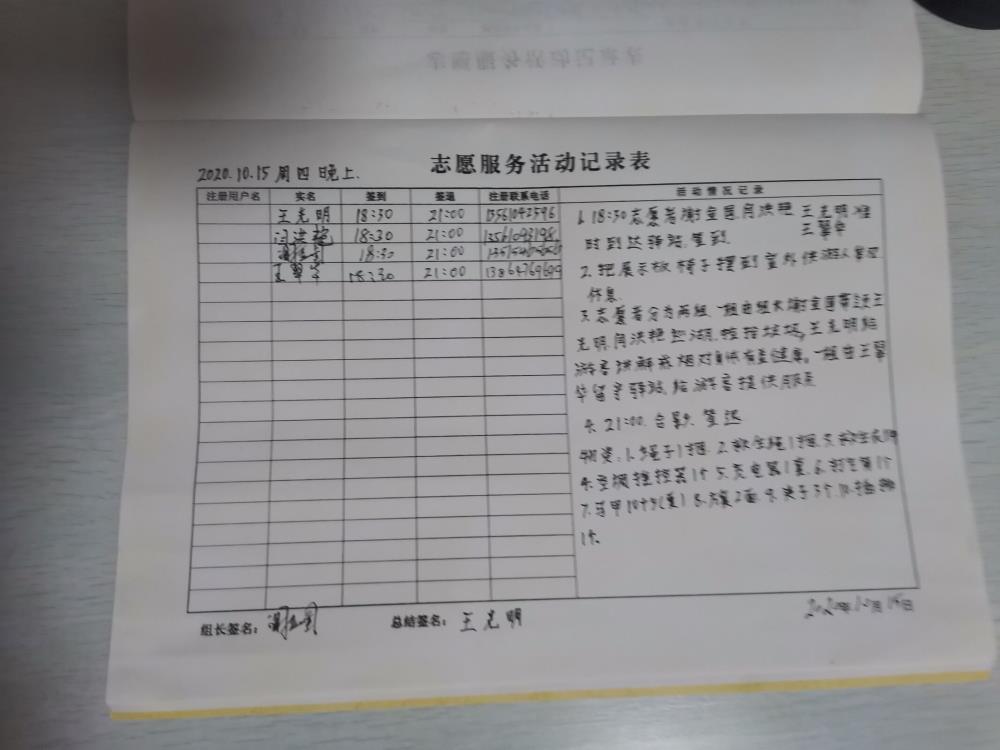 志愿服务活动记录表
2020.10.15 周四 晚上.
注册用户名 实名 签到 签退 注册联系电话 活动情况记录
王光明 18:30 21:00 13561042596
闫洪艳 18:30 21:00 13561093198
18:30 21:00
王翠华 18:30 21:00
1. 18:30志愿者谢宝国.闫洪艳 王光明 准
王翠华
时到达驿站.签到.
2. 把展示板椅子摆到室外供游人
休息.
3. 志愿者分为两组.一组由组长谢宝国带领王
光明.闫洪艳巡湖.捡拾垃圾,王光明给
游客讲解戒烟对身体有益健康。一组由王翠
华留守驿站.给游客提供服务
4. 21:00. 合影. 签退
物资:1.绳子1捆. 2.救生绳1捆. 3.救生衣
4.空调摇控器1个 5.充电器1套. 6.打气筒1个
7.马甲10件(夏) 8.旗2面. 9.夹子3个. 10.
1个.
组长签名: 总结签名:王光明
2020年10月15日